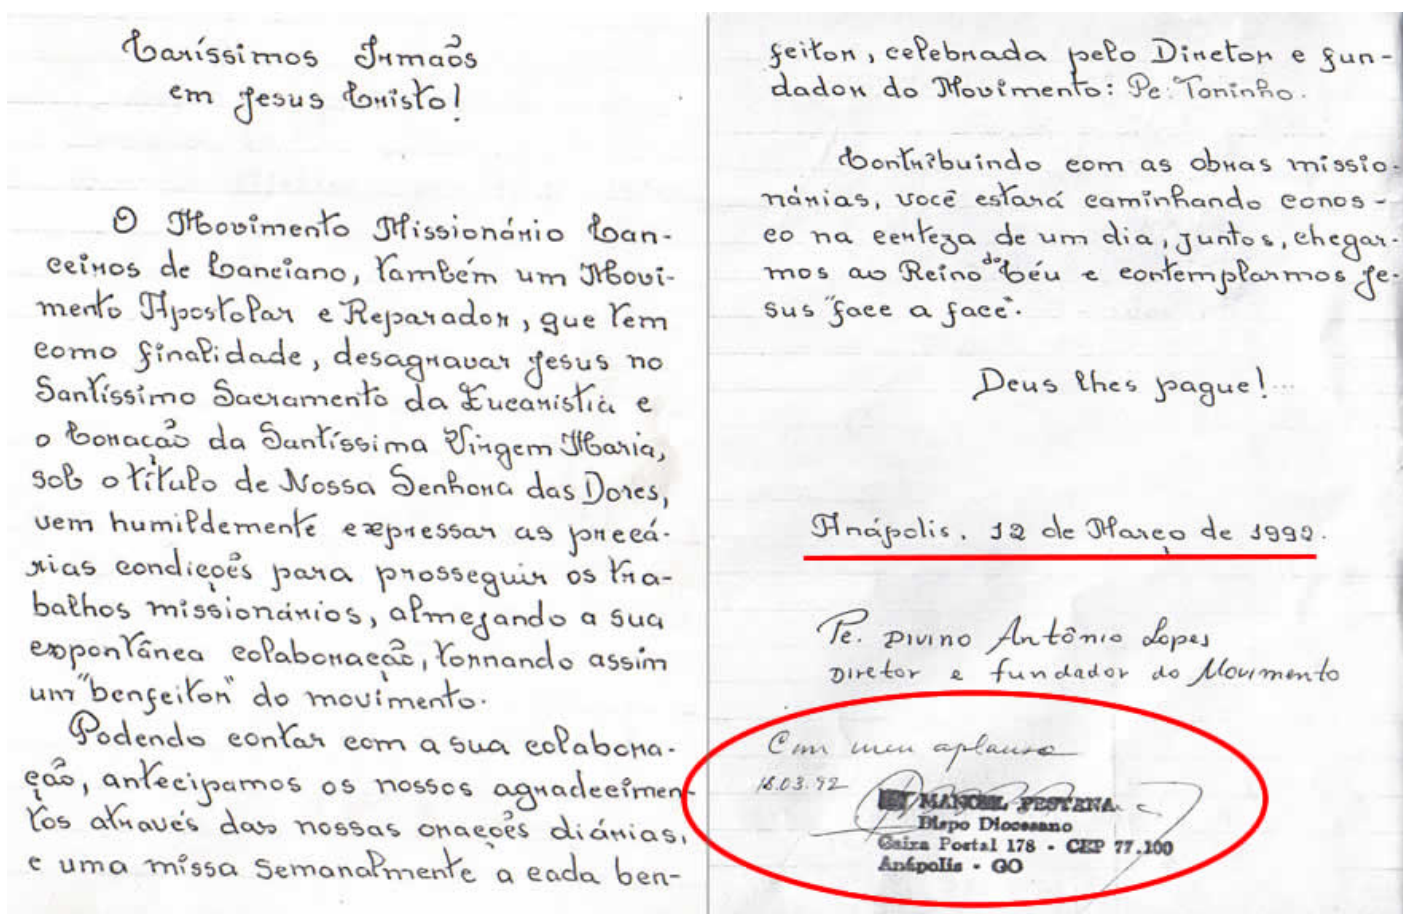 Caríssimos Irmaõs
em Jesus Cristo!
O Movimento Missionário Lan-
ceiros de Lanciano, também um Movi-
mento Apostolar e Reparador, que tem
como finalidade, desagravar Jesus no
Santíssimo Sacramento da Eucaristia e
o Coraçaõ da Santíssima Virgem Maria,
sob o título de Nossa Senhora das Dores,
vem humildemente expressar as precá-
rias condiçoẽs para prosseguir os tra-
balhos missionários, almejando a sua
expontânea colaboraçaõ, tornando assim
um "benfeitor" do movimento.
Podendo contar com a sua colabora-
çaõ, antecipamos os nossos agradecimen-
tos através das nossas oraçoẽs diárias,
e uma missa Semanalmente a cada ben-
feitor, celebrada pelo Diretor e fun-
dador do Movimento: Pe. Toninho.
Contribuindo com as obras missio-
nárias, você estará caminhando conos-
co na certeza de um dia, juntos, chegar-
mos ao Reino do Céu e contemplarmos Je-
sus "face a face".
Deus lhes pague!...
Anápolis, 12 de Março de 1992.
Pe. Divino Antônio Lopes
Diretor e fundador do Movimento
Com meu aplauso
18.03.92
MANOEL PESTANA
Bispo Diocesano
Caixa Postal 178 - CEP 77.100
Anápolis - GO